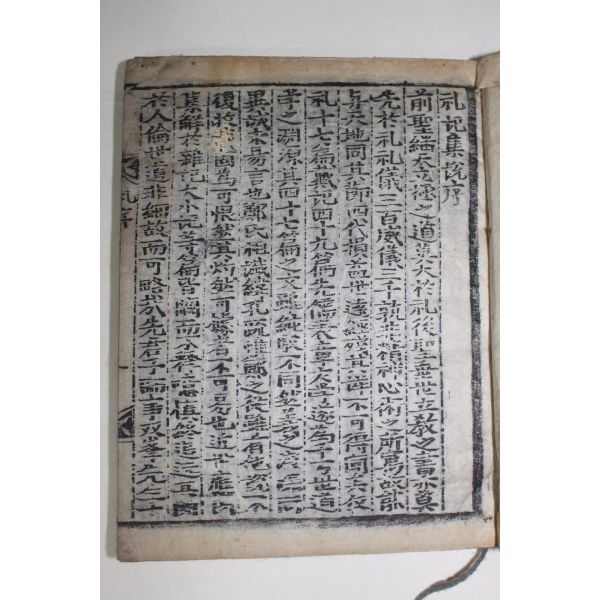 礼記集說序
前聖継天立極之道莫大於礼後聖垂世立敎之書亦莫
先於礼礼儀三百威儀三千孰非精神心術之所寓故能
与天地同其節四代損益世遠經殘其詳不可得聞矣儀
礼十七篇戴記四十九篇先儒表章庸學遂為千万世道
学之淵源其四十七篇之文雖純駁不同然義之浅深同
異誠未易言也鄭氏祖讖緯孔疏惟鄭之從雖有他說不
復收載固為可恨然其灼然可據者不可易也近世應氏
集解於雜記大小記等篇皆闕而不釋噫慎終追遠其関
於人倫世道非細故而可略哉先君子師事双峯先生十
礼序